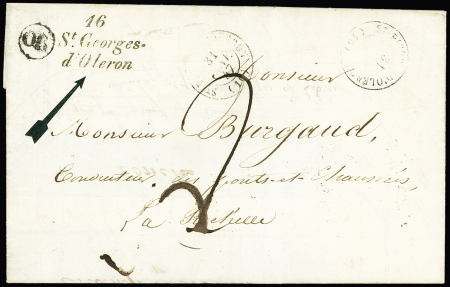 16
St. Georges-
d'Oleron
Monsieur
Monsieur Burgaud,
Conducteur des Ponts-et-Chaussées,
La Rochelle
2